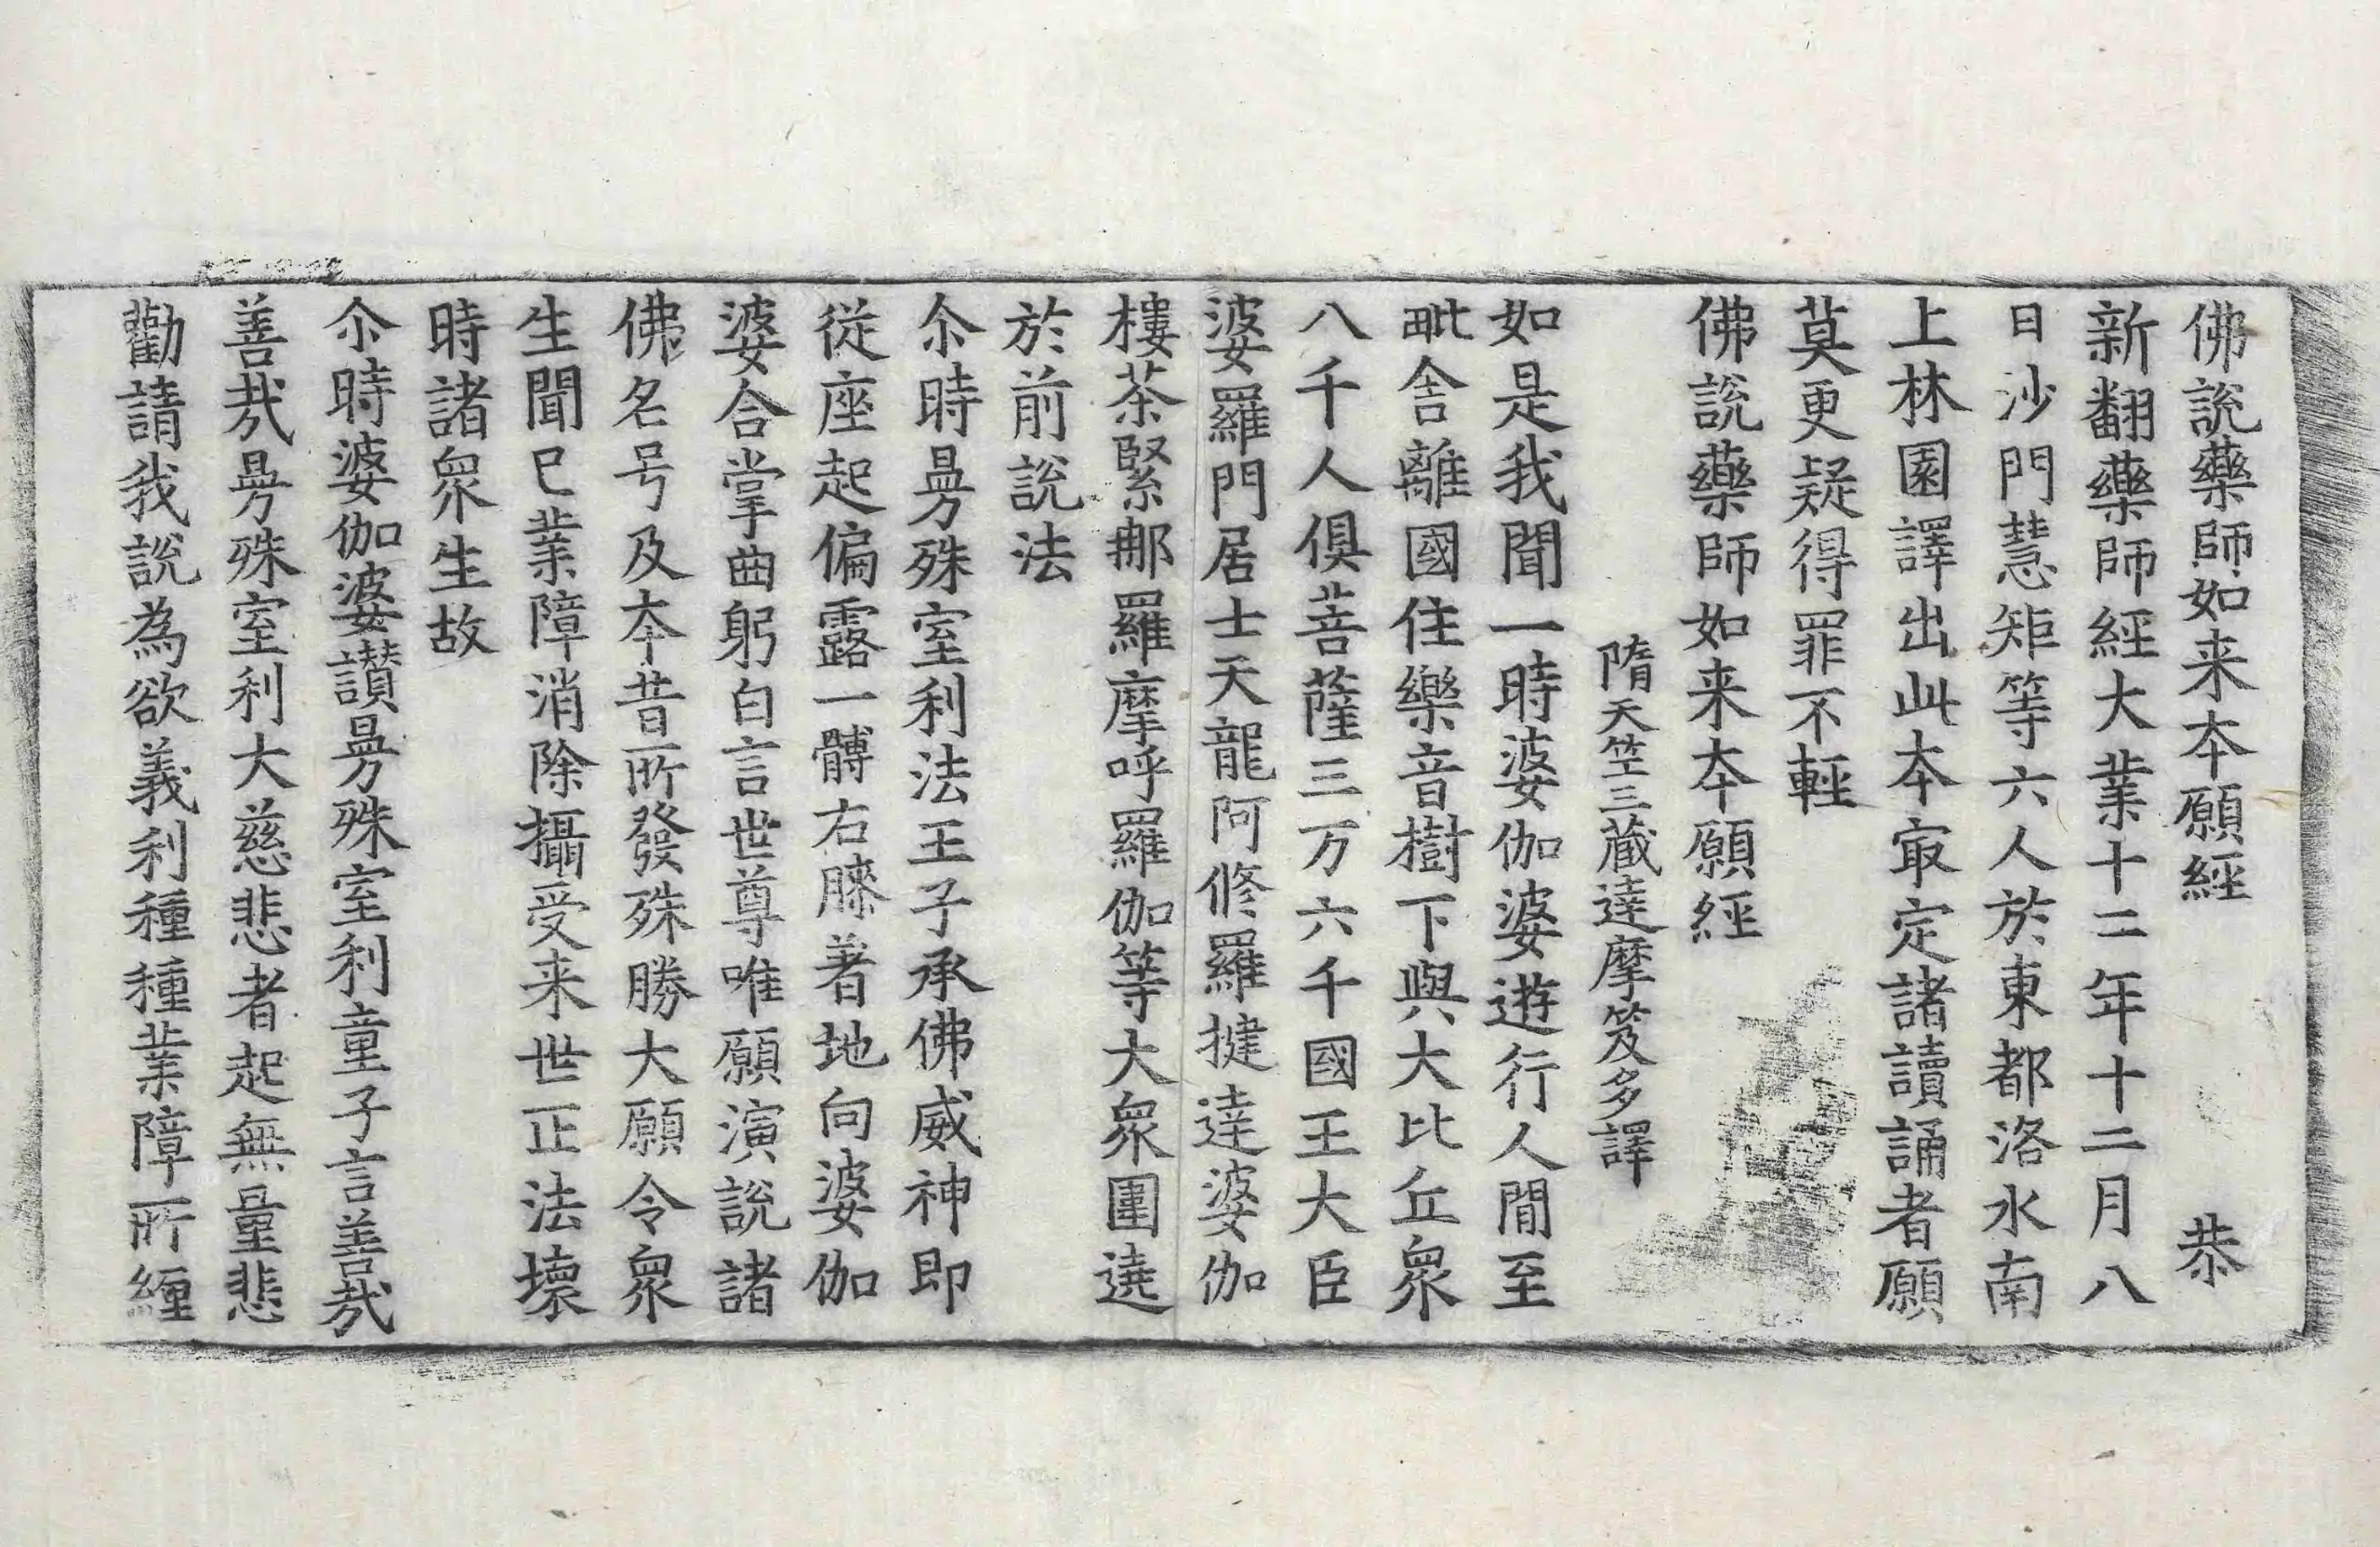 佛說藥師如来夲願經 恭
新翻藥師經大業十二年十二月八
日沙門慧矩等六人於東都洛水南
上林園譯出此夲㝡定諸讀誦者願
莫更疑得罪不輕
佛說藥師如来夲願經
隋天笠三藏達摩笈多譯
如是我聞一時婆伽婆遊行人間至
毗舍離國住樂音樹下與大比丘衆
八千人俱菩薩三万六千國王大臣
婆羅門居士天龍阿脩羅揵達婆伽
樓茶緊那羅摩呼羅伽等大衆圍遶
於前說法
尒時曼殊室利法王子承佛威神即
從座起偏露一髆右膝著地向婆伽
婆合掌曲躬白言世尊唯願演說諸
佛名号及夲昔所發殊勝大願令衆
生聞已業障消除攝受来世正法壞
時諸衆生故
尒時婆伽婆讃曼殊室利童子言善哉
善哉曼殊室利大慈悲者起無量悲
勸請我說為欲義利種種業障所纏